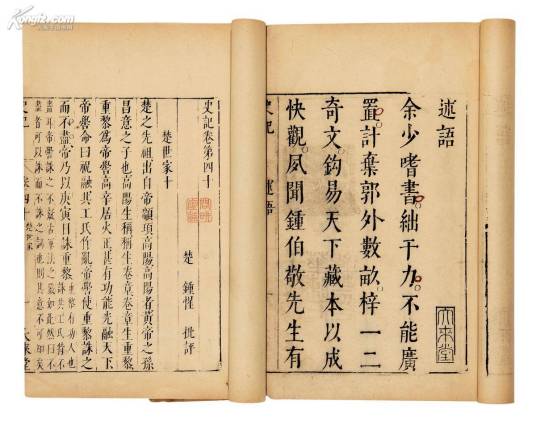 述語
大來堂
余少嗜書絀于力不能廣
置計棄郭外數畝梓一二
奇文鈎易天下藏本以成
快觀夙聞鍾伯敬先生有
史記 述語
史記卷第四十
楚 鍾惺 批評
楚世家十
楚之先祖出自帝顓頊高陽高陽者黃帝之孫
昌意之子也高陽生稱稱生卷章卷章生重黎
重黎為帝嚳高辛居火正甚有功能光融天下
帝嚳命曰祝融共工氏作亂帝嚳使重黎誅之
而不盡帝乃以庚寅日誅重黎
史記 卷四十 楚世家 一 大來堂
Kongfz.com